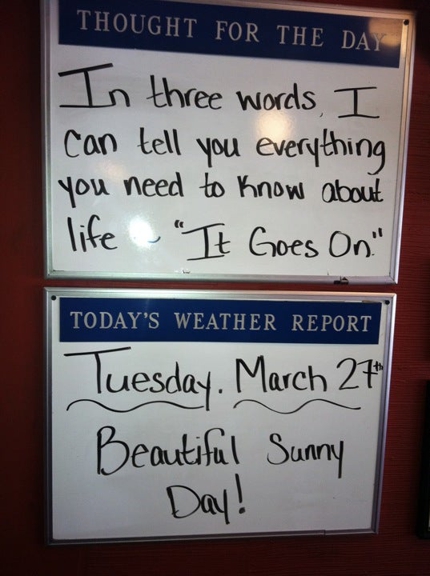 THOUGHT FOR THE DAY
In three words, I
can tell you everything
you need to know about
life ~ "It Goes On."
TODAY'S WEATHER REPORT
Tuesday. March 27th
Beautiful Sunny
Day!